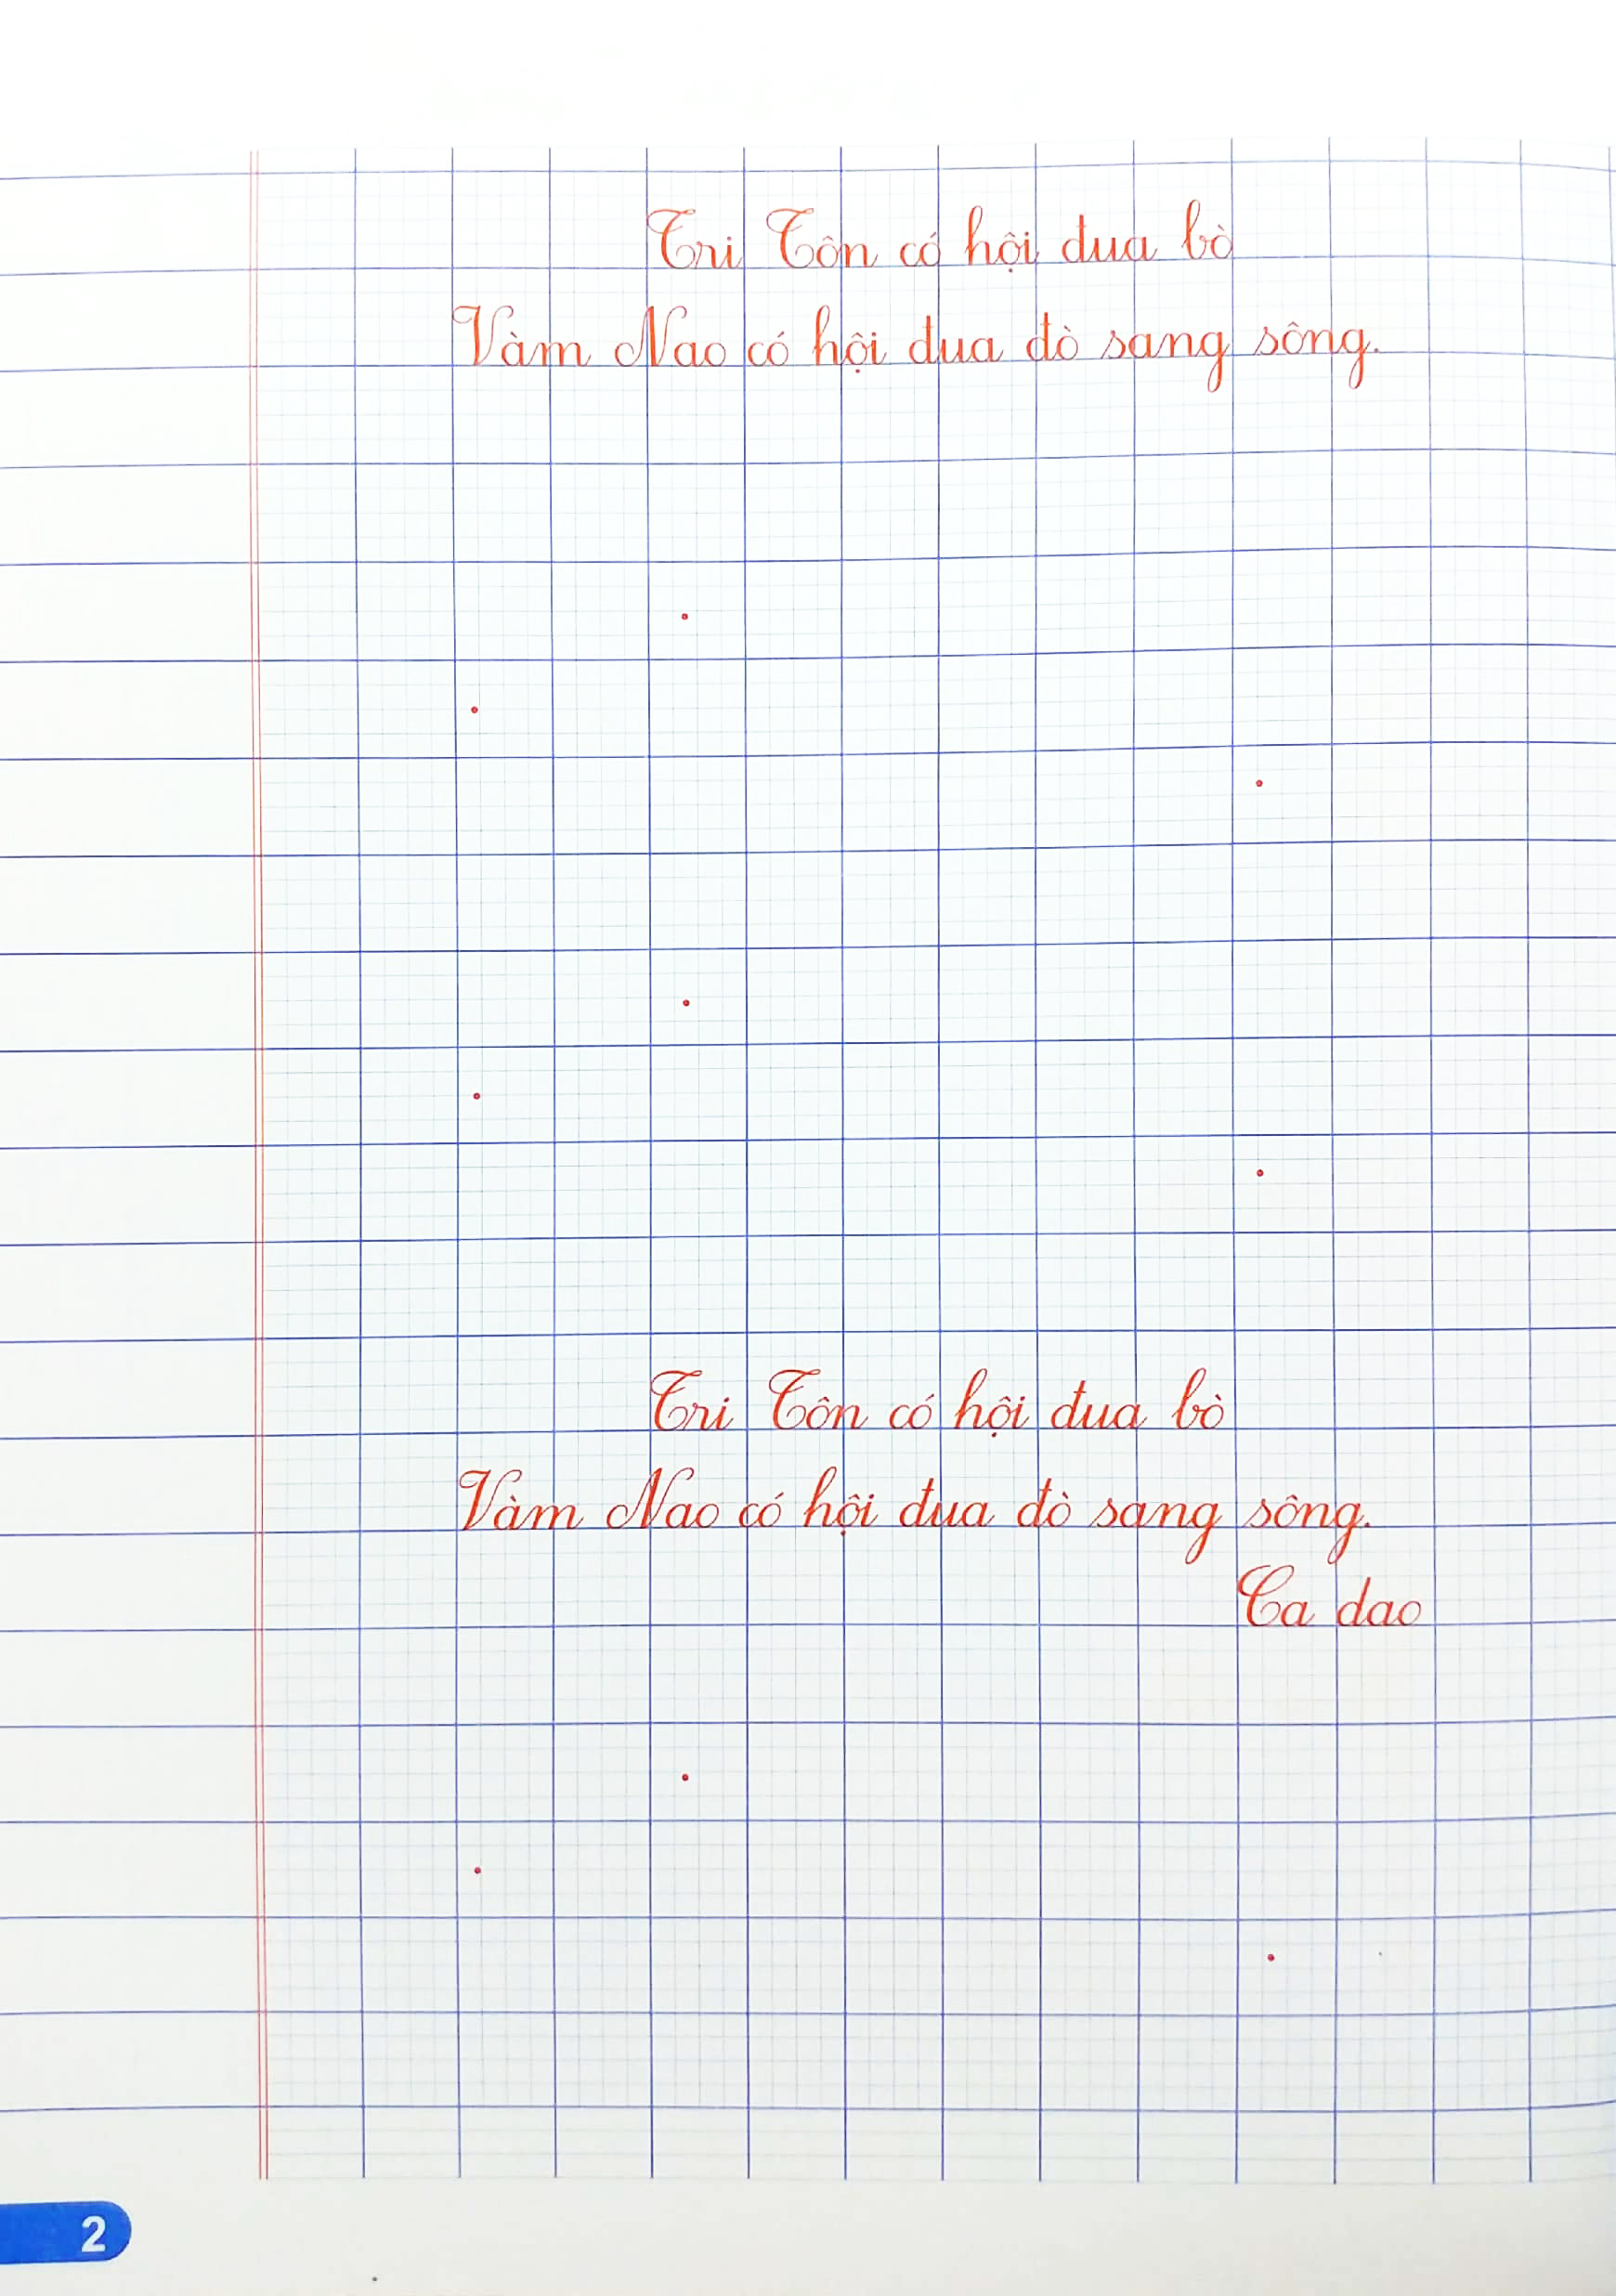 Tri Tôn có hội đua bò
Vàm Nao có hội đua đò sang sông.
Tri Tôn có hội đua bò
Vàm Nao có hội đua đò sang sông.
Ca dao
2